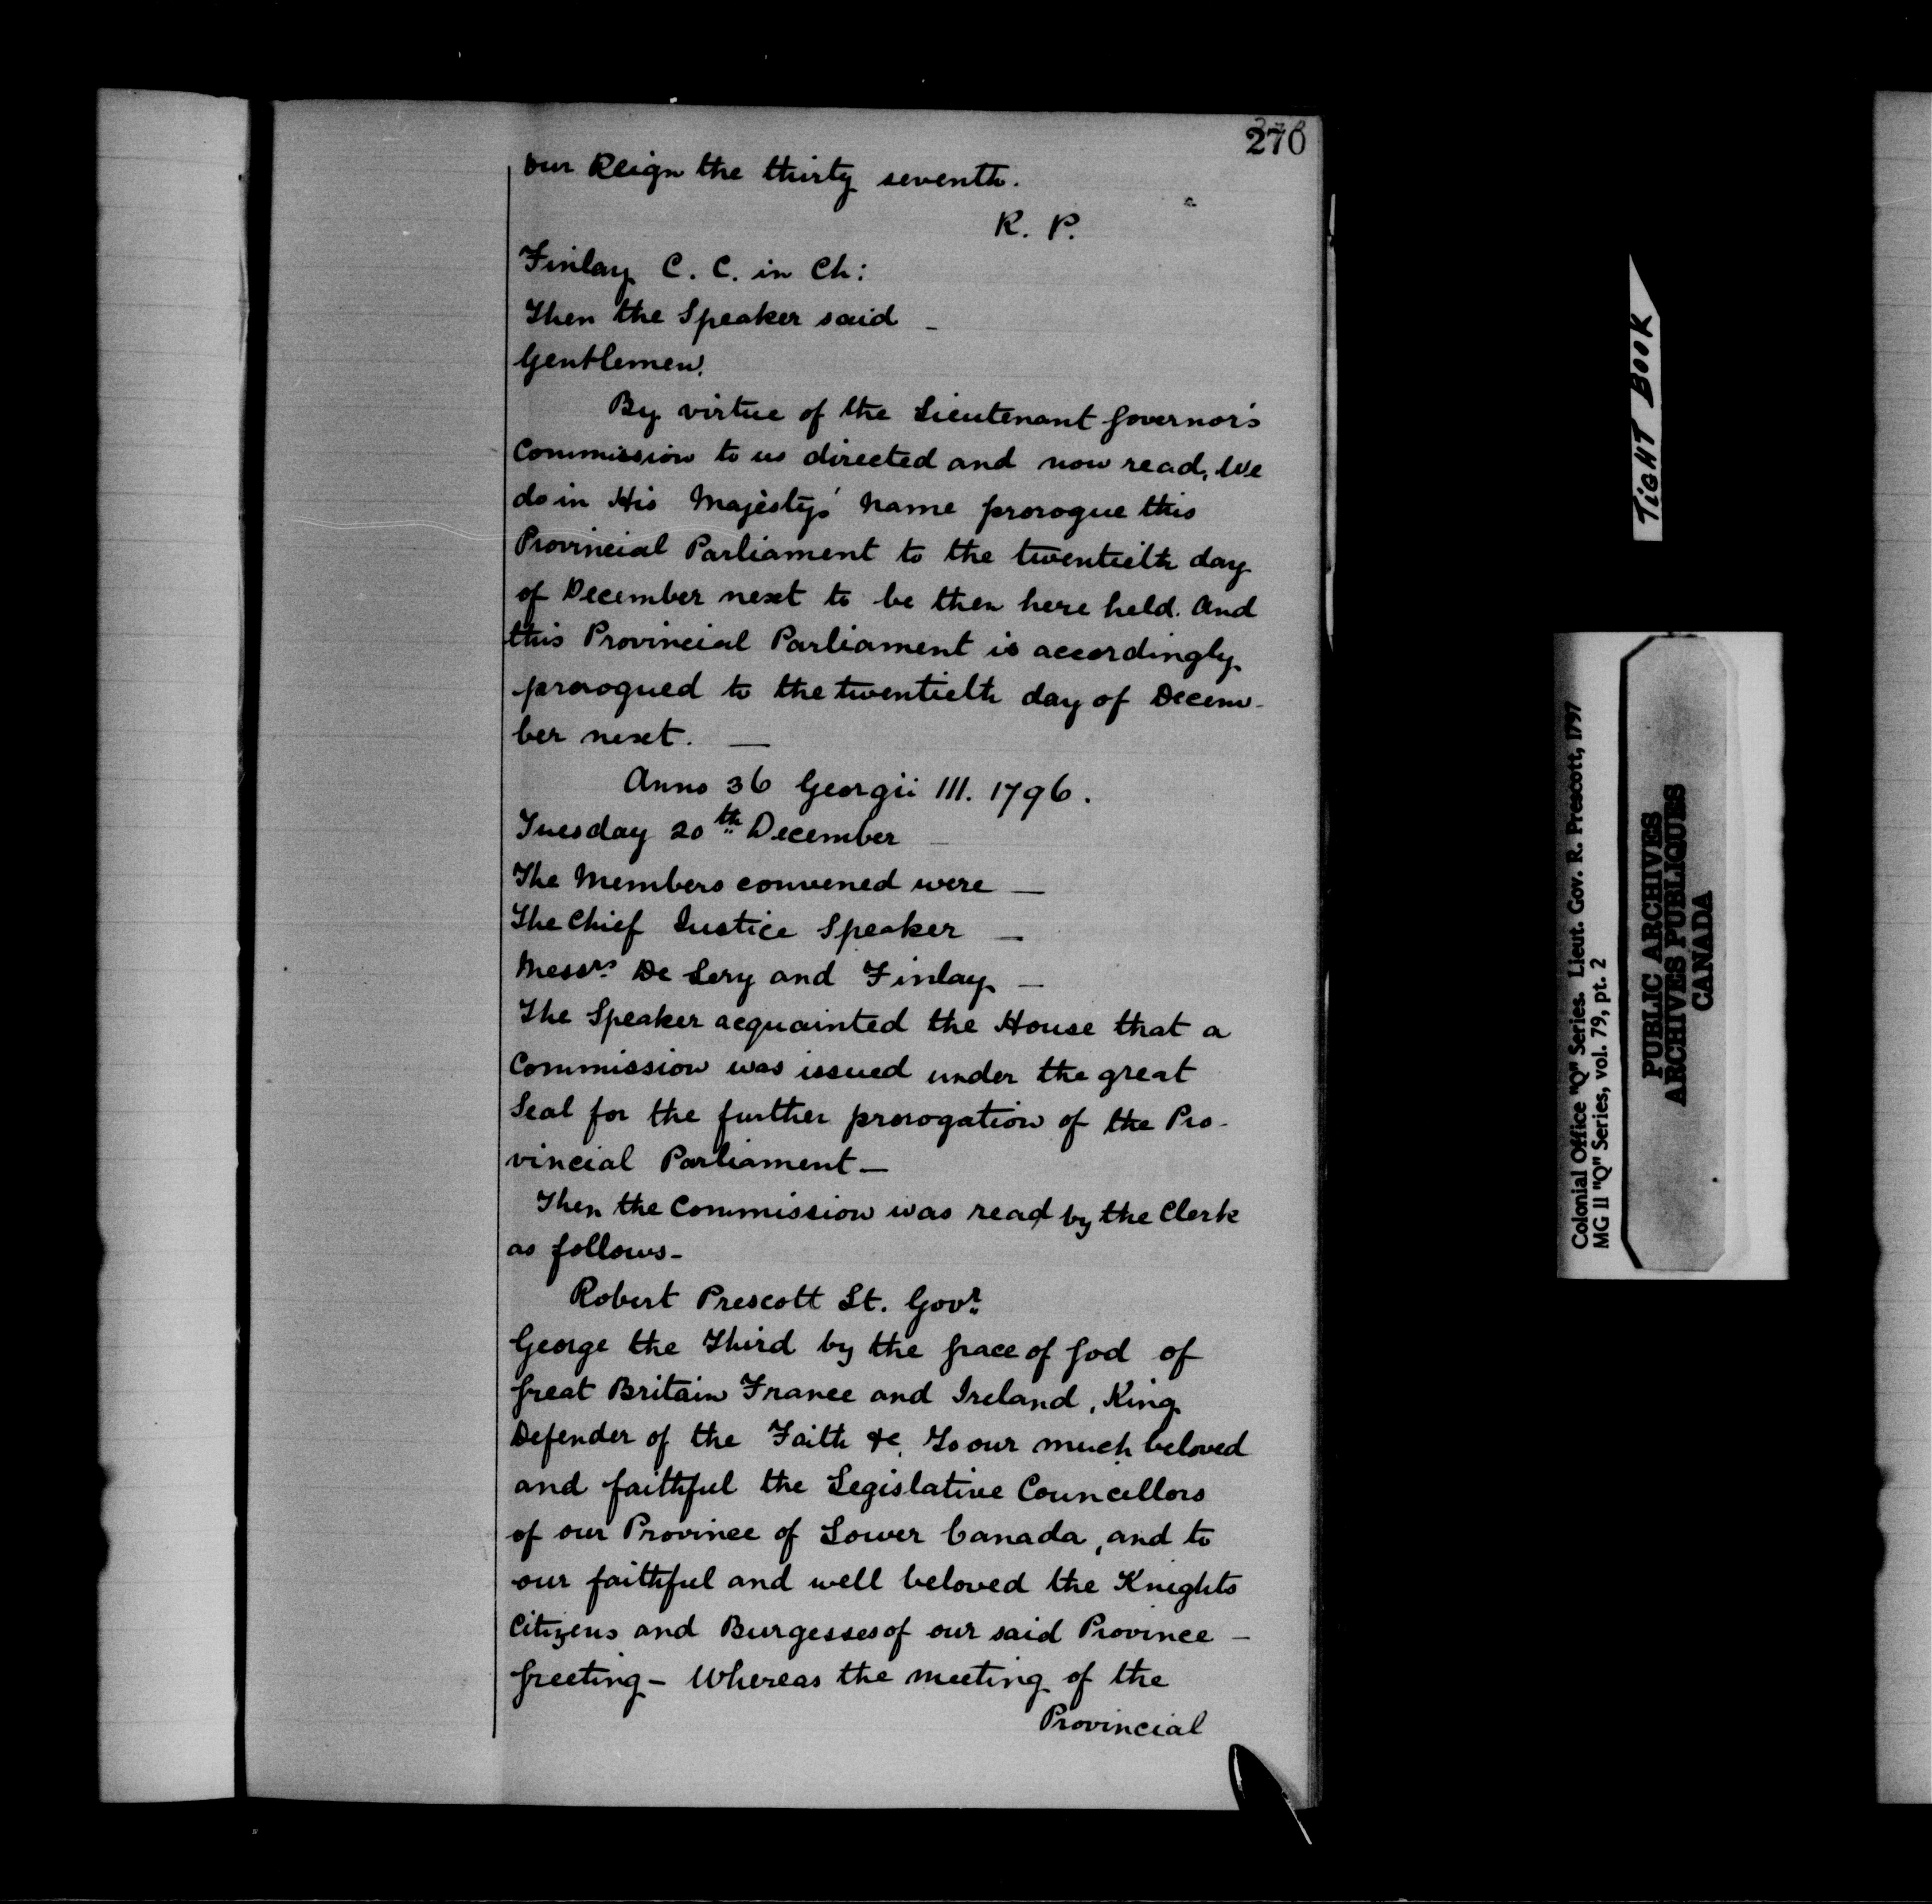 270
our Reign the thirty seventh.
R. P.
Finlay C. C. in Ch:
Then the Speaker said _
Gentlemen.
By virtue of the Lieutenant Governor's
Commission to us directed and now read, We
do in His Majesty's name prorogue this
Provincial Parliament to the twentieth day
of December next to be then here held. And
this Provincial Parliament is accordingly
prorogued to the twentieth day of Decem-
ber next. —
Anno 36 Georgii III. 1796.
Tuesday 20th December _
The Members convened were —
The Chief Justice Speaker —
Messrs. De Lery and Finlay —
The Speaker acquainted the House that a
Commission was issued under the great
Seal for the further prorogation of the Pro-
vincial Parliament —
Then the Commission was read by the Clerk
as follows -
Robert Prescott Lt. Govr.
George the Third by the grace of God of
Great Britain France and Ireland, King
Defender of the Faith &c. To our much beloved
and faithful the Legislative Councellors
of our Province of Lower Canada, and to
our faithful and well beloved the Knights
Citizens and Burgesses of our said Province —
Greeting — Whereas the meeting of the
Provincial
TIGHT BOOK
Colonial Office "Q" Series. Lieut. Gov. R. Prescott, 1797
MG 11 "Q" Series, vol. 79, pt. 2
PUBLIC ARCHIVES
ARCHIVES PUBLIQUES
CANADA